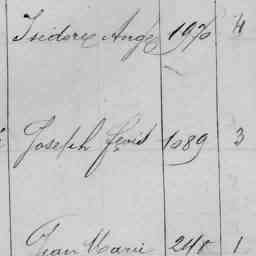 Isidore Ange 1970 4
Joseph 1089 3
Jean Marie 248 1